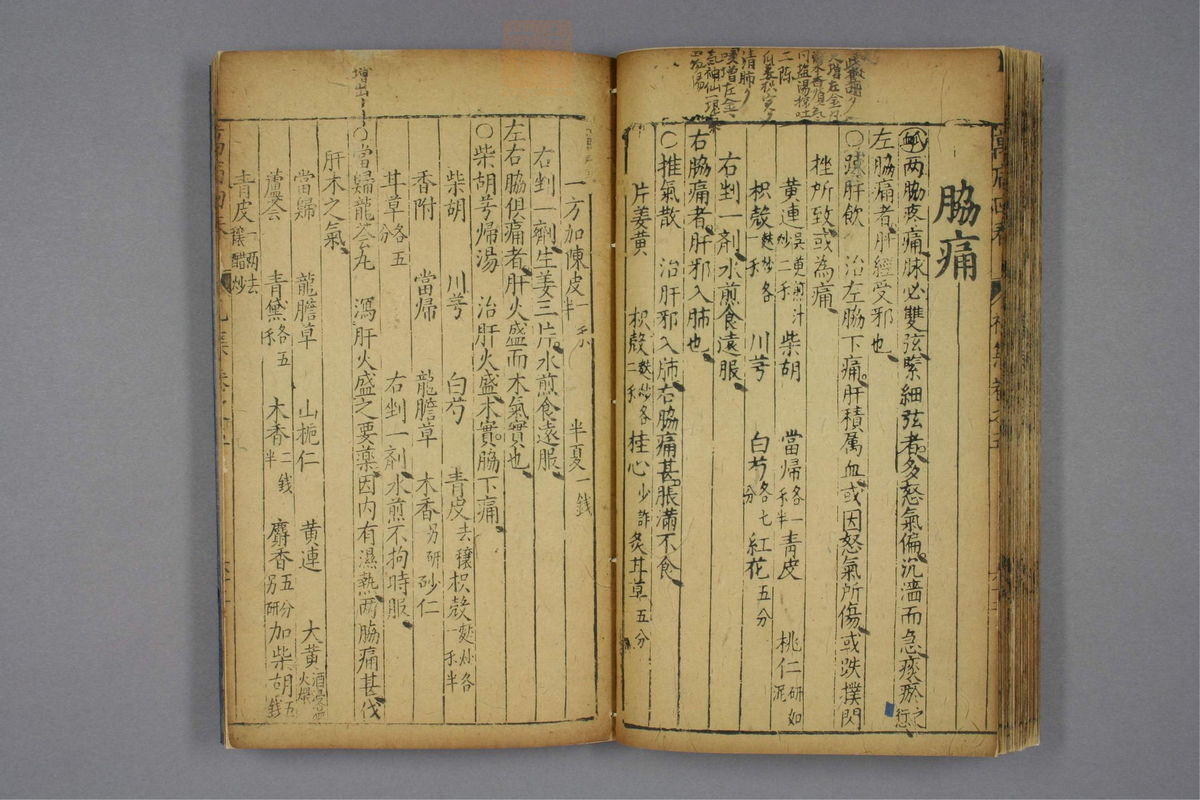 脇痛
脉两脇疼痛脉必雙弦緊細弦者多怒氣偏沉濇而急痰瘀之行
左脇痛者肝經受邪也
○踈肝飲 治左脇下痛肝積属血或因怒氣所傷或跌撲閃
挫所致或為痛
黄連吳茰煎汁炒二禾 柴胡 當帰各一禾半 青皮 桃仁研如泥
枳殼麩炒各一禾 川芎 白芍各七分 紅花五分
右剉一剤水煎食遠服
右脇痛者肝邪入肺也
○推氣散 治肝邪入肺右脇痛甚脹滿不食
片姜黄 枳殼麩炒各二禾 桂心少許 炙甘草五分
一方加陳皮一禾半 半夏一錢
右剉一劑生姜三片水煎食遠服
左右脇俱痛者肝火盛而木氣實也
○柴胡芎帰湯 治肝火盛木實脇下痛
柴胡 川芎 白芍 青皮去穰 枳殼麩炒各一禾半
香附 當帰 龍膽草 木香另研 砂仁
甘草各五分 右剉一剤水煎不拘時服
○當歸龍荟丸 瀉肝火盛之要藥因内有濕熱两脇痛甚伐
肝木之氣
當歸 龍膽草 山梔仁 黄連 大黄酒浸火煨
蘆薈 青黛各五禾 木香二錢半 麝香五分另研 加柴胡五錢
青皮一两去穰醋炒
增出
二陈
清肺